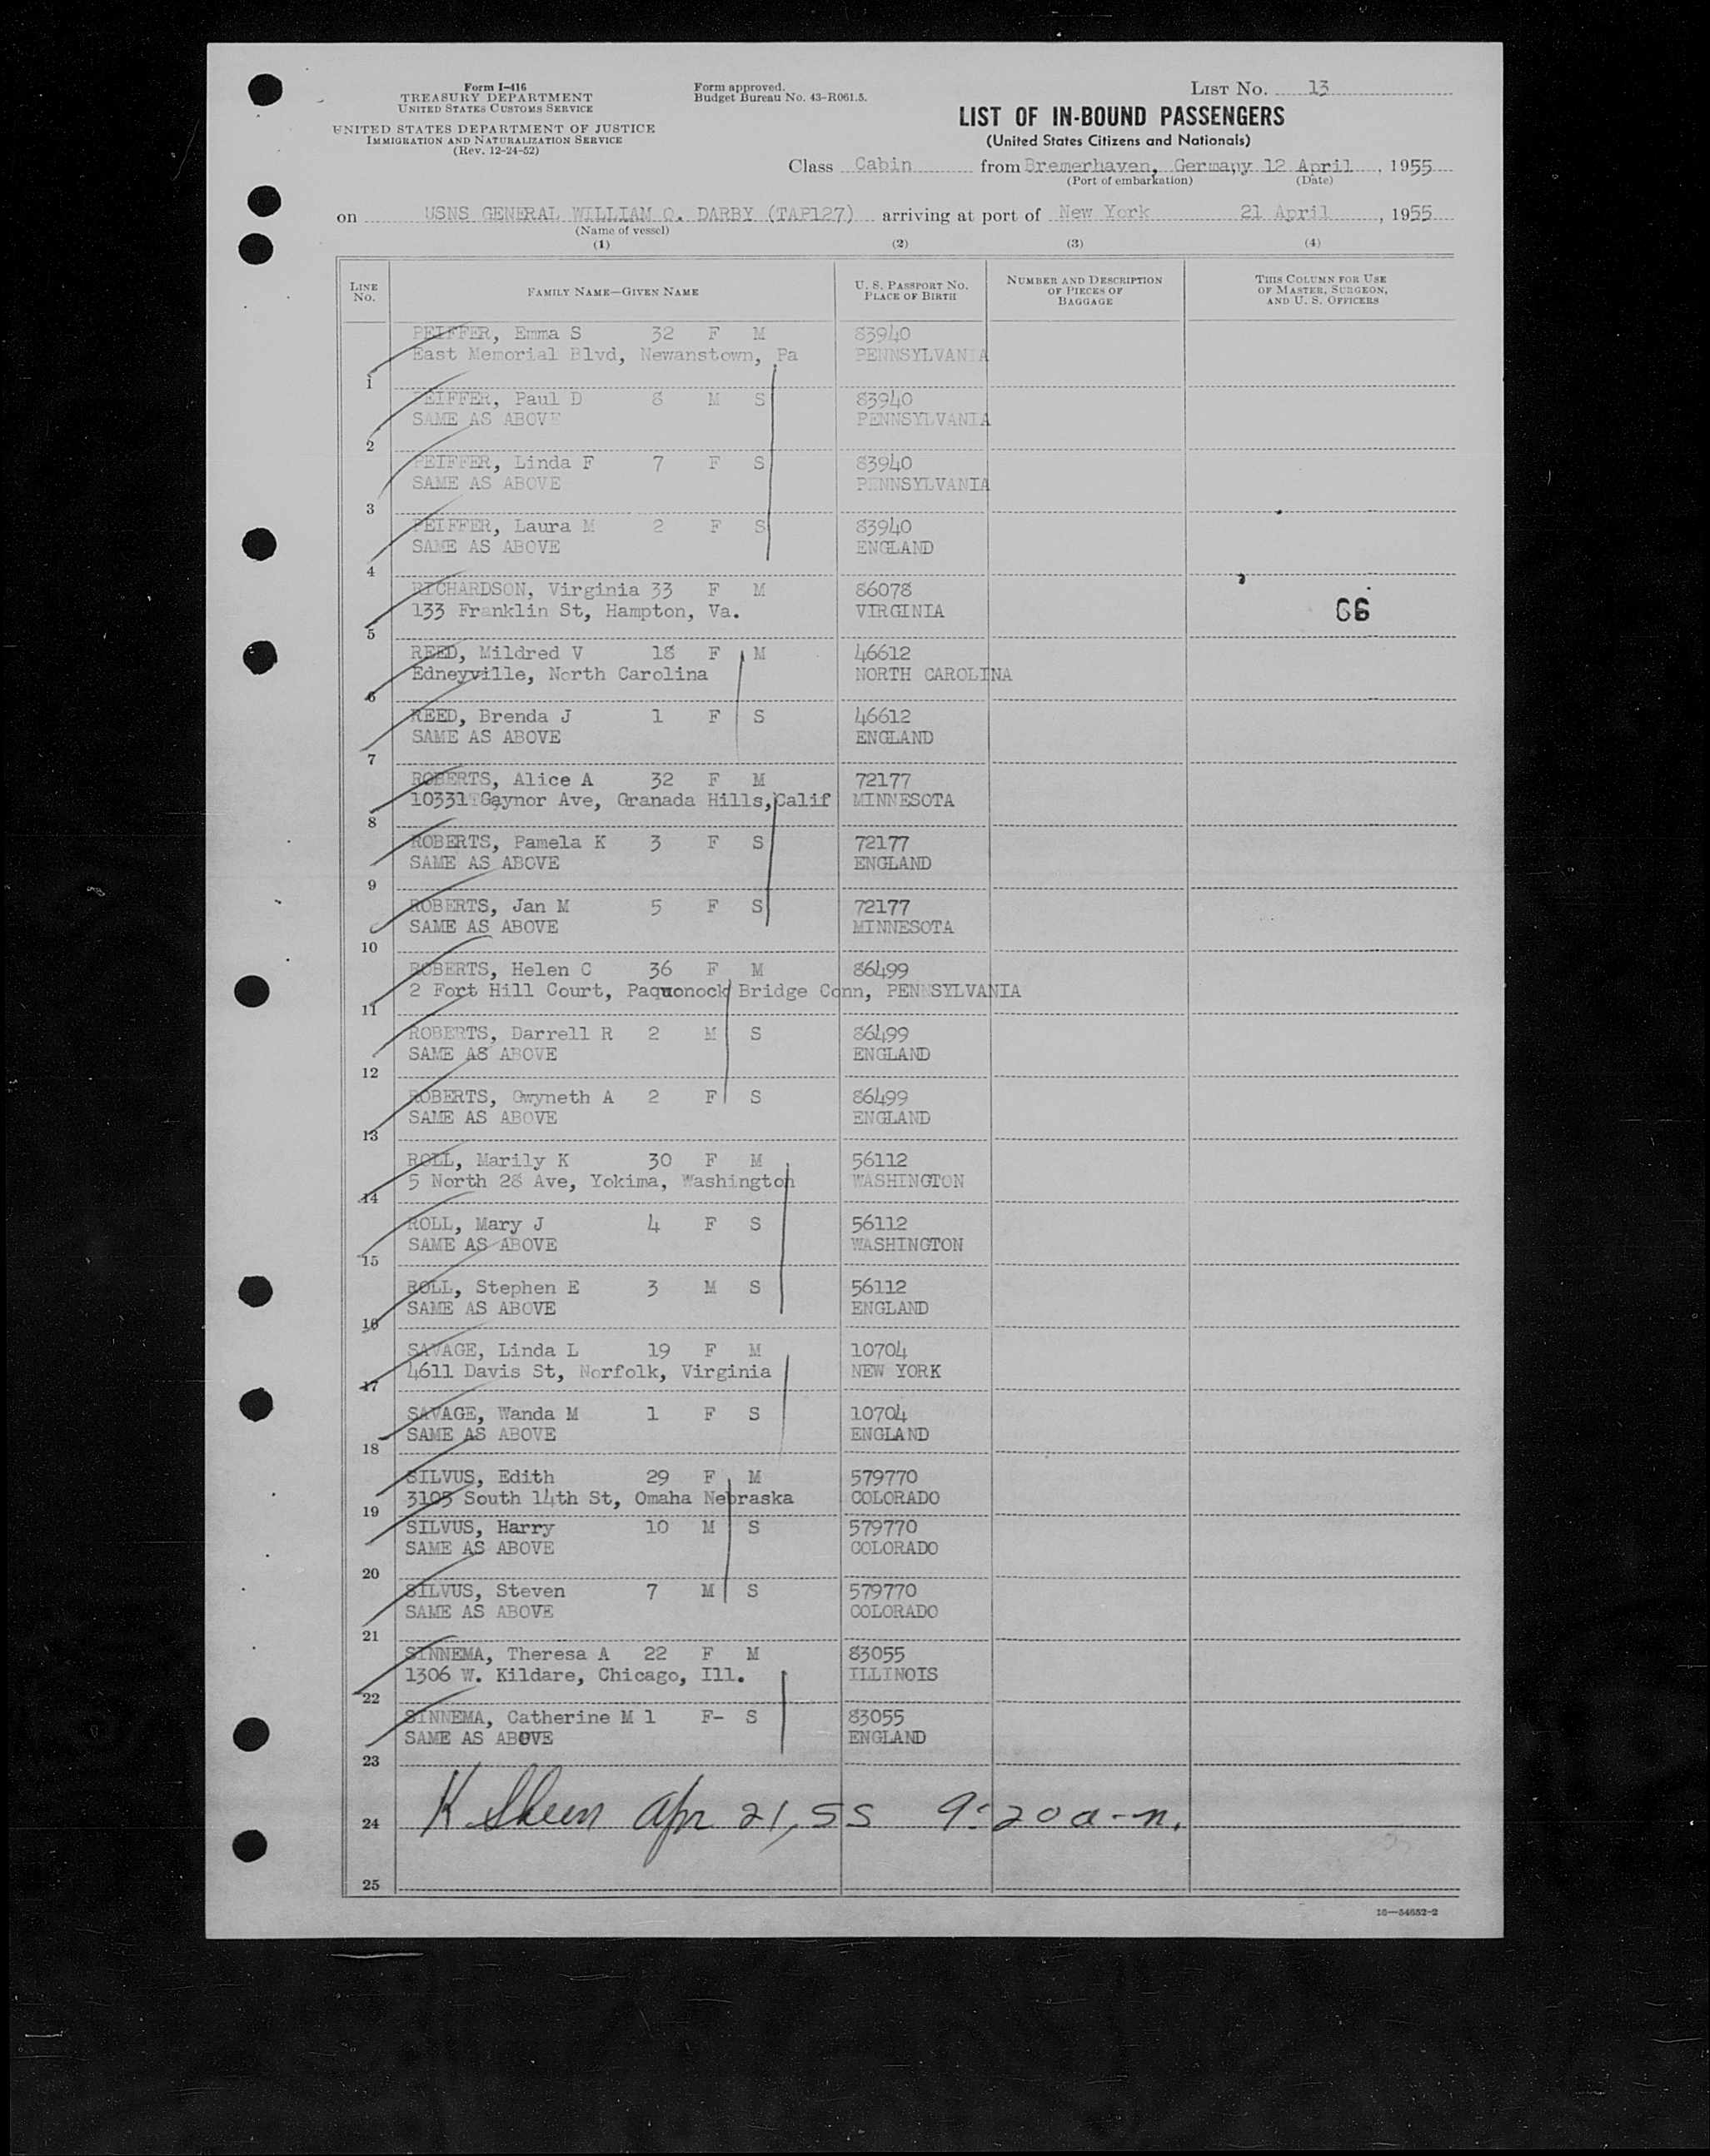 Form I-416
TREASURY DEPARTMENT
UNITED STATES CUSTOMS SERVICE
UNITED STATES DEPARTMENT OF JUSTICE
IMMIGRATION AND NATURALIZATION SERVICE
(Rev. 12-24-52)
Form approved.
Budget Bureau No. 43-R061.5.
LIST No. 13
LIST OF IN-BOUND PASSENGERS
(United States Citizens and Nationals)
Class Cabin from Bremerhaven, Germany 12 April, 1955
(Port of embarkation) (Date)
on USNS GENERAL WILLIAM O. DARBY (TAP127) arriving at port of New York 21 April, 1955
(Name of vessel)
(1) (2) (3) (4)
LINE No. FAMILY NAME—GIVEN NAME U. S. PASSPORT No. PLACE OF BIRTH NUMBER AND DESCRIPTION OF PIECES OF BAGGAGE THIS COLUMN FOR USE OF MASTER, SURGEON, AND U. S. OFFICERS
PEIFFER, Emma S 32 F M 83940
East Memorial Blvd, Newanstown, Pa PENNSYLVANIA
1
PEIFFER, Paul D 8 M S 83940
SAME AS ABOVE PENNSYLVANIA
2
PEIFFER, Linda F 7 F S 83940
SAME AS ABOVE PENNSYLVANIA
3
PEIFFER, Laura M 2 F S 83940
SAME AS ABOVE ENGLAND
4
RICHARDSON, Virginia 33 F M 86078
133 Franklin St, Hampton, Va. VIRGINIA
5
REED, Mildred V 18 F M 46612
Edneyville, North Carolina NORTH CAROLINA
6
REED, Brenda J 1 F S 46612
SAME AS ABOVE ENGLAND
7
ROBERTS, Alice A 32 F M 72177
10331 Gaynor Ave, Granada Hills, Calif MINNESOTA
8
ROBERTS, Pamela K 3 F S 72177
SAME AS ABOVE ENGLAND
9
ROBERTS, Jan M 5 F S 72177
SAME AS ABOVE MINNESOTA
10
ROBERTS, Helen C 36 F M 86499
2 Fort Hill Court, Paquonock Bridge Conn, PENNSYLVANIA
11
ROBERTS, Darrell R 2 M S 86499
SAME AS ABOVE ENGLAND
12
ROBERTS, Gwyneth A 2 F S 86499
SAME AS ABOVE ENGLAND
13
ROLL, Marily K 30 F M 56112
5 North 28 Ave, Yokima, Washington WASHINGTON
14
ROLL, Mary J 4 F S 56112
SAME AS ABOVE WASHINGTON
15
ROLL, Stephen E 3 M S 56112
SAME AS ABOVE ENGLAND
16
SAVAGE, Linda L 19 F M 10704
4611 Davis St, Norfolk, Virginia NEW YORK
17
SAVAGE, Wanda M 1 F S 10704
SAME AS ABOVE ENGLAND
18
SILVUS, Edith 29 F M 579770
3103 South 14th St, Omaha Nebraska COLORADO
19
SILVUS, Harry 10 M S 579770
SAME AS ABOVE COLORADO
20
SILVUS, Steven 7 M S 579770
SAME AS ABOVE COLORADO
21
SINNEMA, Theresa A 22 F M 83055
1306 W. Kildare, Chicago, Ill. ILLINOIS
22
SINNEMA, Catherine M 1 F- S 83055
SAME AS ABOVE ENGLAND
23
24 K. Apr 21, 55 9:20 a-m.
25
16—54652-2